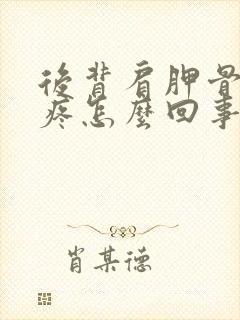 後背肩胛骨
疼怎麼回事
肖某德